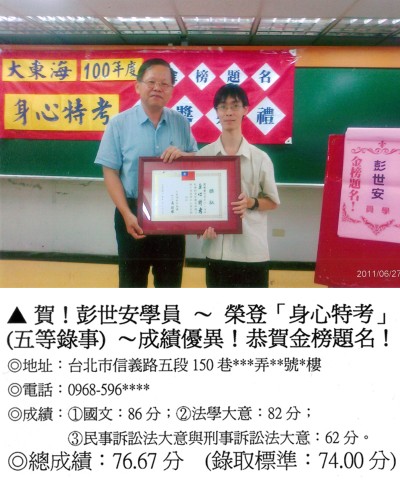 大東海 100年度 金榜題名
身心特考 獎 禮
彭世安
學員
金榜題名！
2011/06/27
▲ 賀！彭世安學員 ～ 榮登「身心特考」
(五等錄事) ～成績優異！恭賀金榜題名！
◎地址：台北市信義路五段150巷***弄**號*樓
◎電話：0968-596****
◎成績：①國文：86分；②法學大意：82分；
③民事訴訟法大意與刑事訴訟法大意：62分。
◎總成績：76.67分 (錄取標準：74.00分)